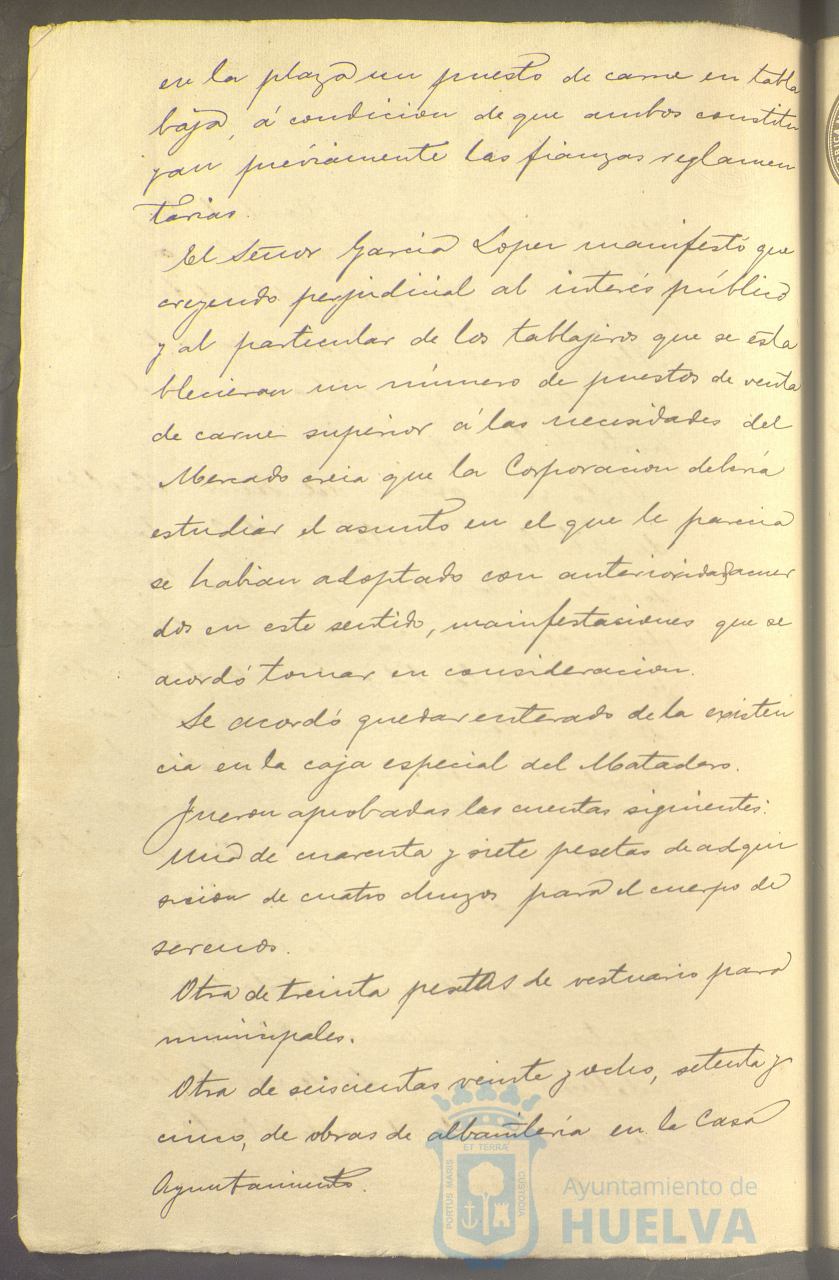 en la plaza un puesto de carne en tabla
baja, á condicion de que ambos constitu
yan préviamente las fianzas reglamen
tarias.
El Señor García Lopez manifestó que
creyendo perjudicial al interés público
y al particular de los tablajeros que se esta
blecieran un número de puestos de venta
de carne superior á las necesidades del
Mercado creia que la Corporacion debería
estudiar el asunto en el que le parecia
se habian adoptado con anterioridad acuer
dos en este sentido, manifestaciones que se
acordó tomar en consideracion.
Se acordó quedar enterado de la existen
cia en la caja especial del Matadero.
Fueron aprobadas las cuentas siguientes:
Una de cuarenta y siete pesetas de adqui
sicion de cuatro chuzos para el cuerpo de
serenos.
Otra de treinta pesetas de vestuario para
municipales.
Otra de seiscientas veinte y ocho, setenta y
cinco, de obras de albañilería en la Casa
Ayuntamiento.
PORTUS MARIS ET TERRÆ CUSTODIA
Ayuntamiento de
HUELVA